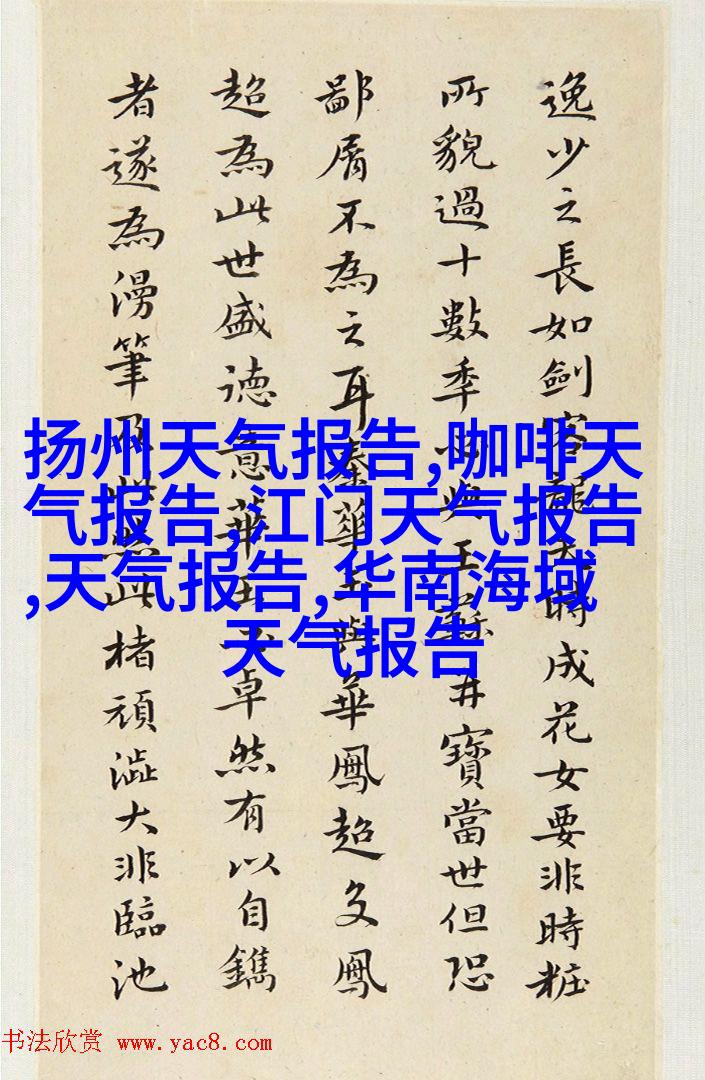 逸少之長如劍客龍時成花女要非時粧
所貌過十數年與王蘇井寶當世但恐
鄙屑不為之耳秦華玉與華鳳超文鳳
超為此世盛德意華玉卓然有以自鐫
者遂為漫筆此楮頑澁大非臨池
扬州天气报告,咖啡天
气报告,江门天气报告
,天气报告,华南海域
天气报告
书法欣赏 www.yac8.com